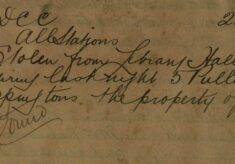 DCC 2
All Stations
Stolen from Strang Hall
during last night 5 Pulle
pingtons. the property of